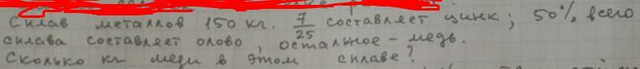 Сплав металлов 150 кг. 7/25 составляет цинк; 50% всего
сплава составляет олово, остальное - медь.
Сколько кг меди в этом сплаве?